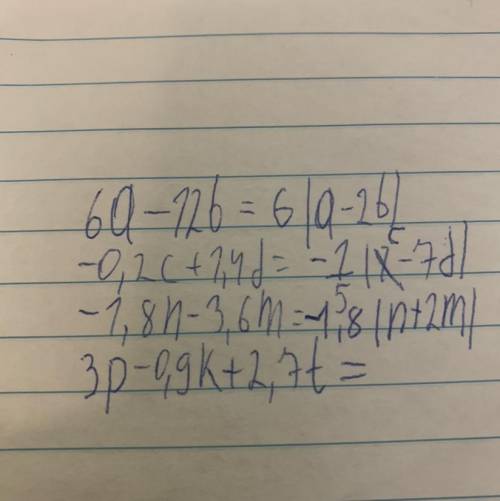 6a - 12b = 6(a - 2b)
-0,2c + 1,4d = -1(c - 7d)
-1,8n - 3,6m = -1,8(n + 2m)
3p - 0,9k + 2,7t =